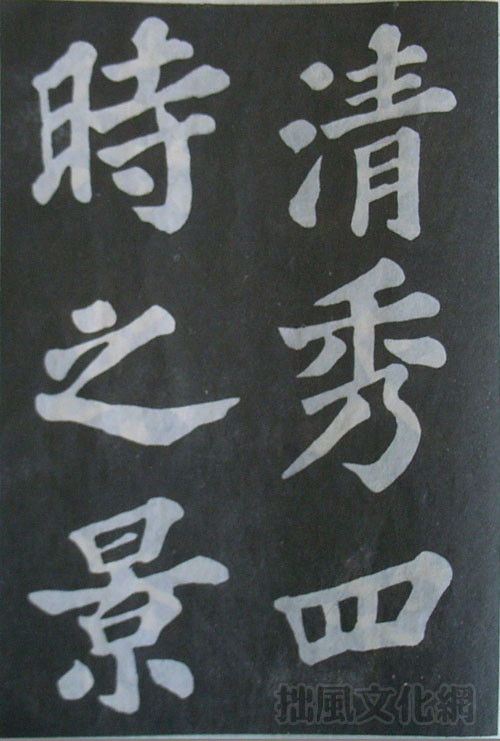 清秀四
時之景
拙風文化網